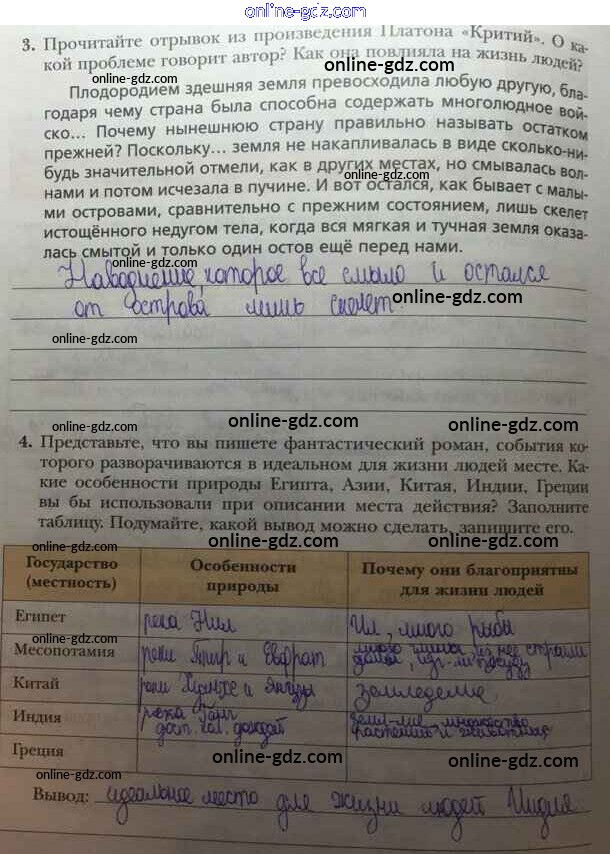 online-gdz.com
3. Прочитайте отрывок из произведения Платона «Критий». О ка-
кой проблеме говорит автор? Как она повлияла на жизнь людей?
online-gdz.com
Плодородием здешняя земля превосходила любую другую, бла-
годаря чему страна была способна содержать многолюдное вой-
online-gdz.com online-gdz.com
ско... Почему нынешнюю страну правильно называть остатком
прежней? Поскольку... земля не накапливалась в виде сколько-ни-
будь значительной отмели, как в других местах, но смывалась вол-
online-gdz.com
нами и потом исчезала в пучине. И вот остался, как бывает с малы-
ми островами, сравнительно с прежним состоянием, лишь скелет
истощённого недугом тела, когда вся мягкая и тучная земля оказа-
лась смытой и только один остов ещё перед нами.
online-gdz.com online-gdz.com
Наводнение, которое все смыло и остался
online-gdz.com
от острова лишь скелет.
online-gdz.com
online-gdz.com
online-gdz.com online-gdz.com
4. Представьте, что вы пишете фантастический роман, события ко-
торого разворачиваются в идеальном для жизни людей месте. Ка-
online-gdz.com
кие особенности природы Египта, Азии, Китая, Индии, Греции
вы бы использовали при описании места действия? Заполните
таблицу. Подумайте, какой вывод можно сделать, запишите его.
online-gdz.com online-gdz.com
Государство (местность) Особенности природы Почему они благоприятны для жизни людей
online-gdz.com
Египет река Нил Ил, много рыбы
online-gdz.com online-gdz.com
Месопотамия реки Тигр и Евфрат много глины, из нее строили
дома, изг-ли посуду
online-gdz.com
Китай реки Хуанхэ и Янцзы земледелие
online-gdz.com online-gdz.com
Индия река Ганг земл-лие, множество
дост. кол. дождей растений и животных
online-gdz.com
Греция
online-gdz.com online-gdz.com
Вывод: идеальное место для жизни людей Индия
online-gdz.com